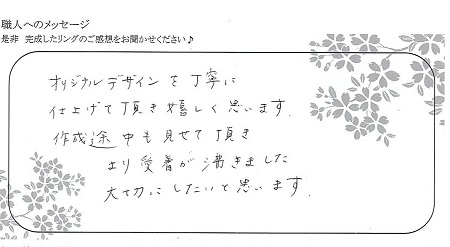 職人へのメッセージ
是非 完成したリングのご感想をお聞かせください♪
オリジナルデザインを丁寧に
仕上げて頂き嬉しく思います。
作成途中も見せて頂き
より愛着が沸きました
大切にしたいと思います。